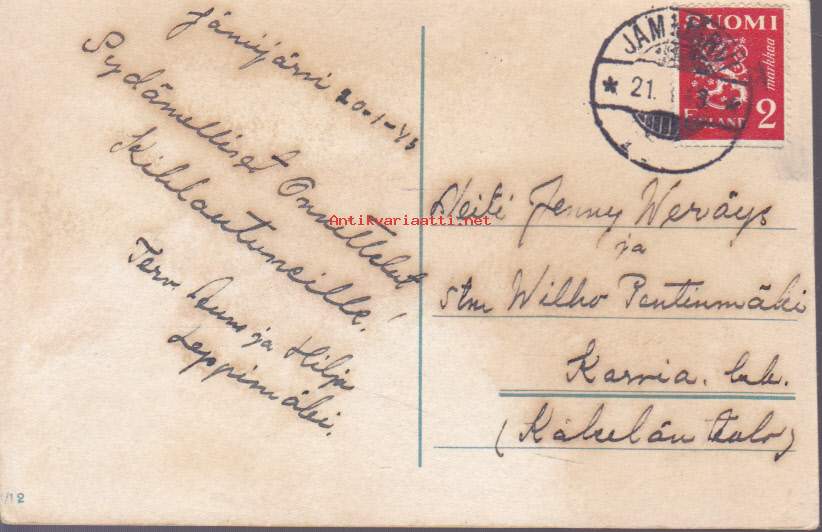 Jämijärvi 20-1-43
Sydämelliset Onnittelut
Kihlautuneille!
Terv. ja Hilja
Leppimäki.
Neiti Jenny Weräys
ja
stm Wilho Pentinmäki
Karvia. kk.
(Käkelän talo)
SUOMI
markkaa
FINLAND 2
JÄMIJÄRVI
* 21. 1. *
Antikvariaatti.net
/12